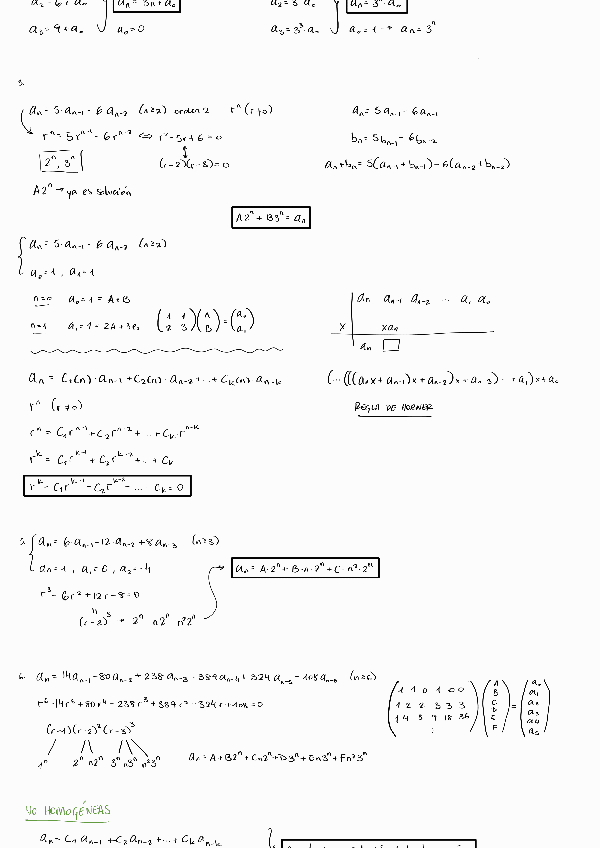 a₃ = 3³·a₀
a₀ = 1 → aₙ = 3ⁿ
a₀ = 0
aₙ = 5·aₙ₋₁ - 6·aₙ₋₂ (n≥2) orden 2 rⁿ (r≠0)
aₙ = 5aₙ₋₁ - 6aₙ₋₁
rⁿ = 5rⁿ⁻¹ - 6rⁿ⁻² ⇔ r² - 5r + 6 = 0
bₙ = 5bₙ₋₁ - 6bₙ₋₂
2ⁿ, 3ⁿ
(r-2)(r-3) = 0
aₙ + bₙ = 5(aₙ₋₁ + bₙ₋₁) - 6(aₙ₋₂ + bₙ₋₂)
A2ⁿ → ya es solución
A2ⁿ + B3ⁿ = aₙ
aₙ = 5·aₙ₋₁ - 6·aₙ₋₂ (n≥2)
a₀ = 1, a₁ = 1
n=0 a₀ = 1 = A + B
n=1 a₁ = 1 = 2A + 3B
(1 1 / 2 3)(A / B) = (a₀ / a₁)
aₙ aₙ₋₁ aₙ₋₂ ... a₁ a₀
x xaₙ
aₙ
aₙ = C₁(n)·aₙ₋₁ + C₂(n)·aₙ₋₂ + ... + Cₖ(n)·aₙ₋ₖ
(...(((aₙx + aₙ₋₁)x + aₙ₋₂)x + aₙ₋₃)... + a₁)x + a₀
rⁿ (r≠0)
REGLA DE HORNER
rⁿ = C₁rⁿ⁻¹ + C₂rⁿ⁻² + ... + Cₖ rⁿ⁻ᵏ
rᵏ = C₁rᵏ⁻¹ + C₂rᵏ⁻² + ... + Cₖ
rᵏ - C₁rᵏ⁻¹ - C₂rᵏ⁻² - ... Cₖ = 0
aₙ = 6·aₙ₋₁ - 12·aₙ₋₂ + 8aₙ₋₃ (n≥3)
a₁ = 0, a₂ = -4
aₙ = A·2ⁿ + B·n·2ⁿ + C·n²·2ⁿ
r³ - 6r² + 12r - 8 = 0
(r-2)³ → 2ⁿ n2ⁿ n²2ⁿ
6. aₙ = 14aₙ₋₁ - 80aₙ₋₂ + 238aₙ₋₃ - 389aₙ₋₄ + 324aₙ₋₅ - 108aₙ₋₆ (n≥6)
(r-1)(r-2)²(r-3)³
1ⁿ 2ⁿ n2ⁿ 3ⁿ n3ⁿ n²3ⁿ
aₙ = A + B2ⁿ + Cn2ⁿ + D3ⁿ + En3ⁿ + Fn²3ⁿ
NO HOMOGÉNEAS
aₙ = C₁aₙ₋₁ + C₂aₙ₋₂ + ... + Cₖaₙ₋ₖ